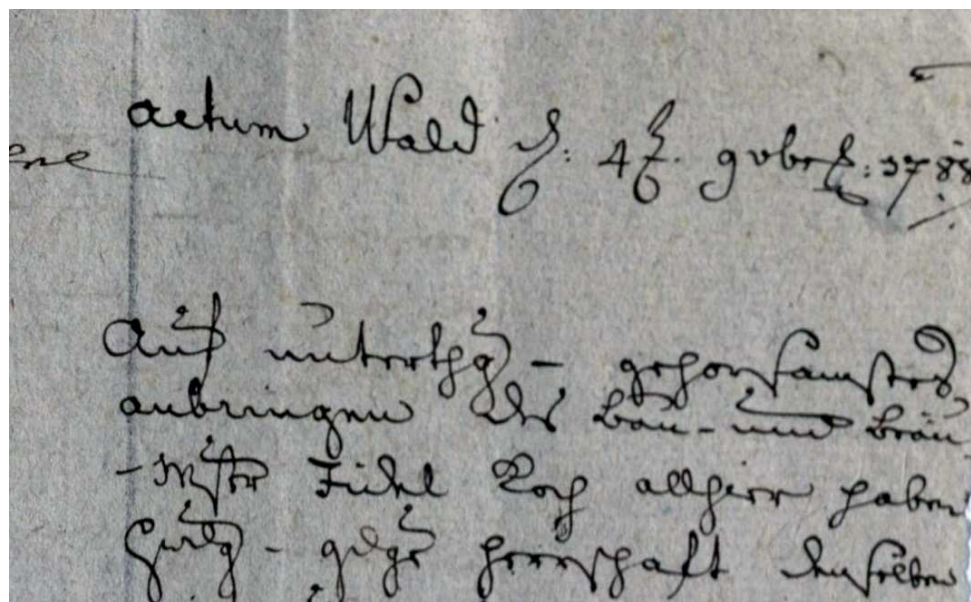 actum Wald d: 4t. 9vbris: 1788
Auf unterthg – gehorsamstes
anbringen des Bau- und Bräu
-Mster Fidel Koch allhier haben
herrschaft denselben